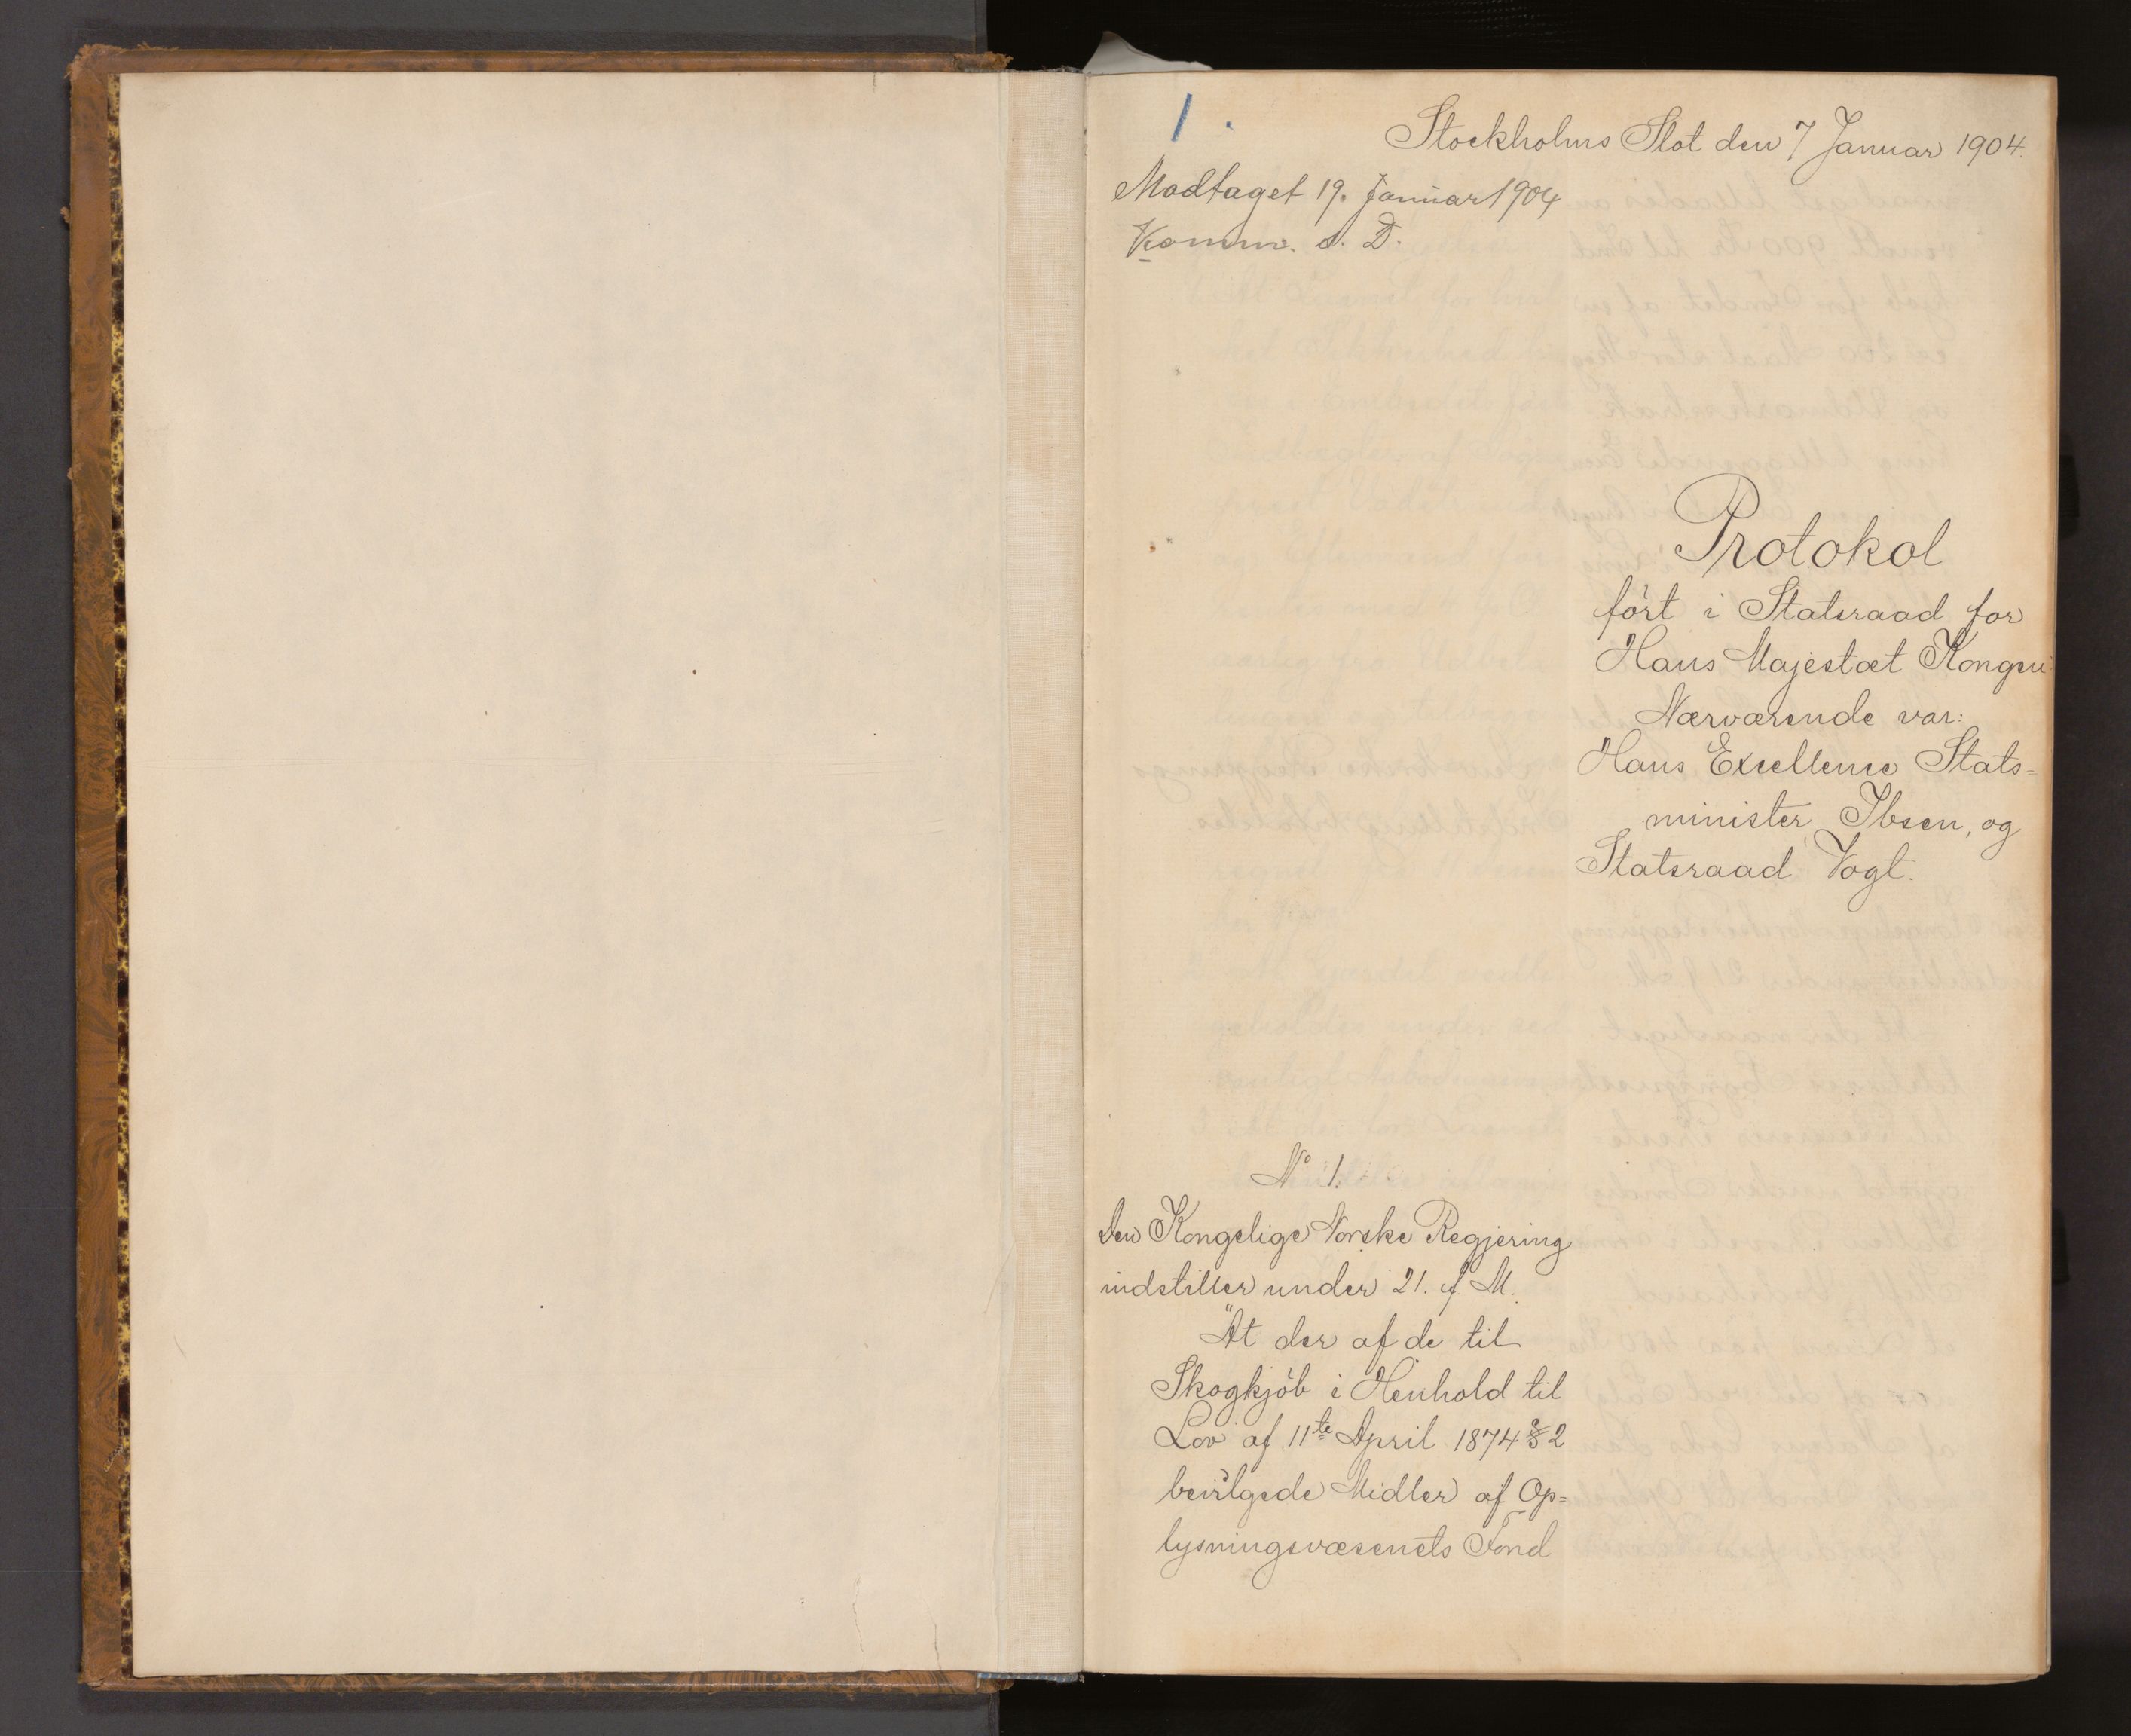 1.
Stockholms Slot den 7 Januar 1904.
Modtaget 19. Januar 1904
Komm. s. D.
Protokol
ført i Statsraad for
Hans Majestæt Kongen
Nærværende var:
Hans Excellence Stats=
minister Ibsen, og
Statsraad Vogt.
No 1.
Den Kongelige Norske Regjering
indstiller under 21. f. M.
"At der af de til
Skogkjöb i Henhold til
Lov af 11te April 1874 § 2
bevilgede Midler af Op=
lysningsvæsenets Fond